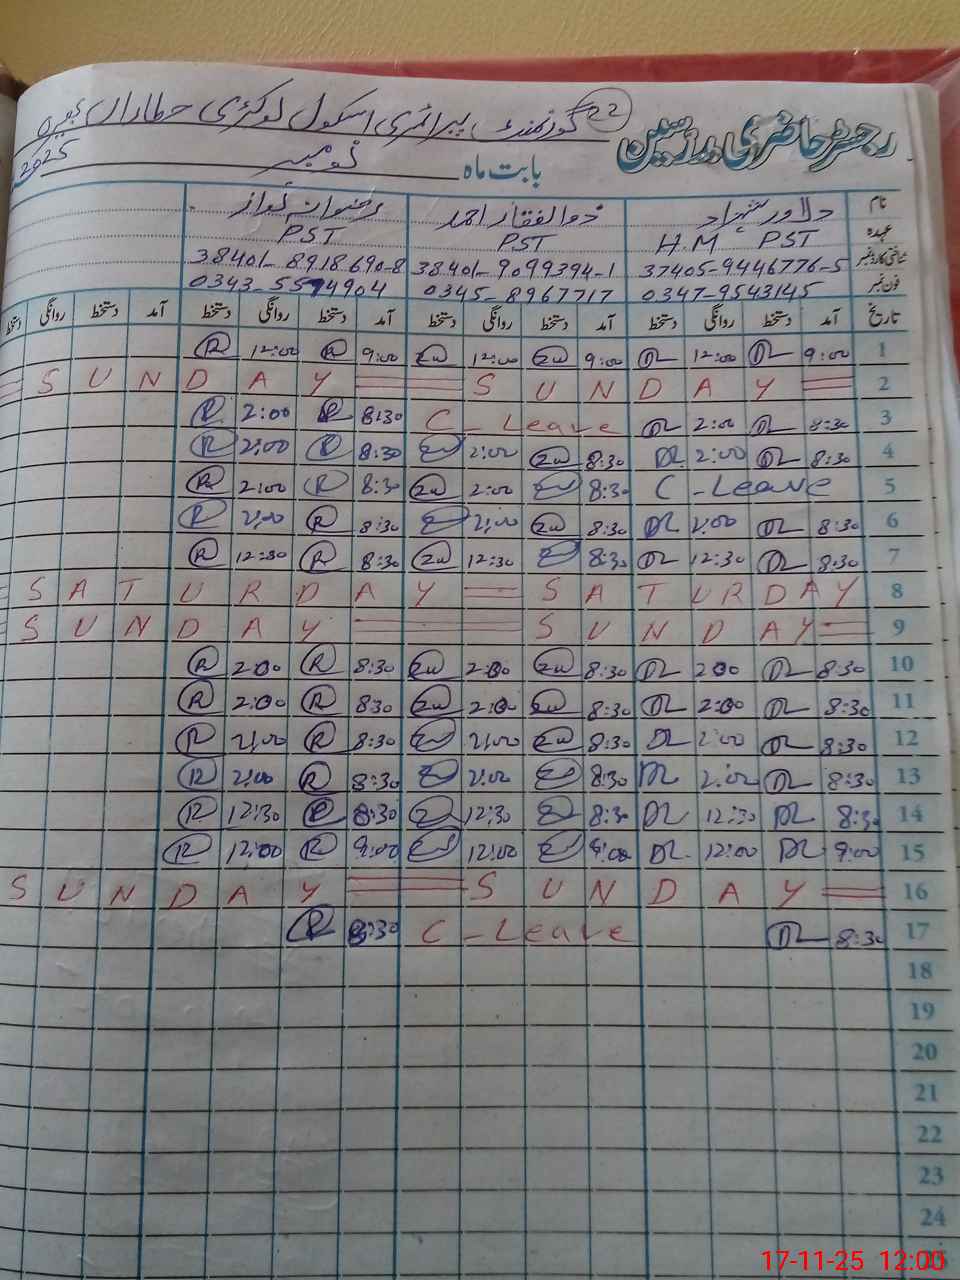 22
گورنمنٹ پرائمری اسکول ڈوکڑی حطاراں
رجسٹر حاضری مدرسین
بابت ماہ نومبر 2025
نام دلاور شہزاد ذوالفقار احمد رضوان نواز
عہدہ HM PST PST PST
شناختی کارڈ نمبر 37405-9446776-5 38401-9099394-1 38401-8918690-8
فون نمبر 0347-9543145 0345-8967717 0343-5594904
تاریخ آمد دستخط روانگی دستخط آمد دستخط روانگی دستخط آمد دستخط روانگی دستخط آمد دستخط روانگی دستخط
1 9:00 DL 12:00 DL 9:00 Zu 12:00 Zu 9:00 R 12:00 R
2 SUNDAY SUNDAY
3 8:30 DL 2:00 DL C-Leave 8:30 R 2:00 R
4 8:30 DL 2:00 DL 8:30 Zu 2:00 8:30 R 2:00 R
5 C-Leave 8:30 2:00 Zu 8:30 R 2:00 R
6 8:30 DL 2:00 DL 8:30 Zu 2:00 8:30 R 2:00 R
7 8:30 DL 12:30 DL 8:30 12:30 Zu 8:30 R 12:30 R
8 SATURDAY SATURDAY
9 SUNDAY SUNDAY
10 8:30 DL 2:00 DL 8:30 Zu 2:00 Zu 8:30 R 2:00 R
11 8:30 DL 2:00 DL 8:30 Zu 2:00 Zu 830 R 2:00 R
12 8:30 DL 2:00 DL 8:30 Zu 2:00 8:30 R 2:00 R
13 8:30 DL 2:00 DL 8:30 2:00 8:30 R 2:00 R
14 8:30 DL 12:30 DL 8:30 12:30 8:30 R 12:30 R
15 9:00 DL 12:00 DL 9:00 12:00 9:00 R 12:00 R
16 SUNDAY SUNDAY
17 8:30 DL C-Leave 8:30 R
18
19
20
21
22
23
24
25
17-11-25 12:00